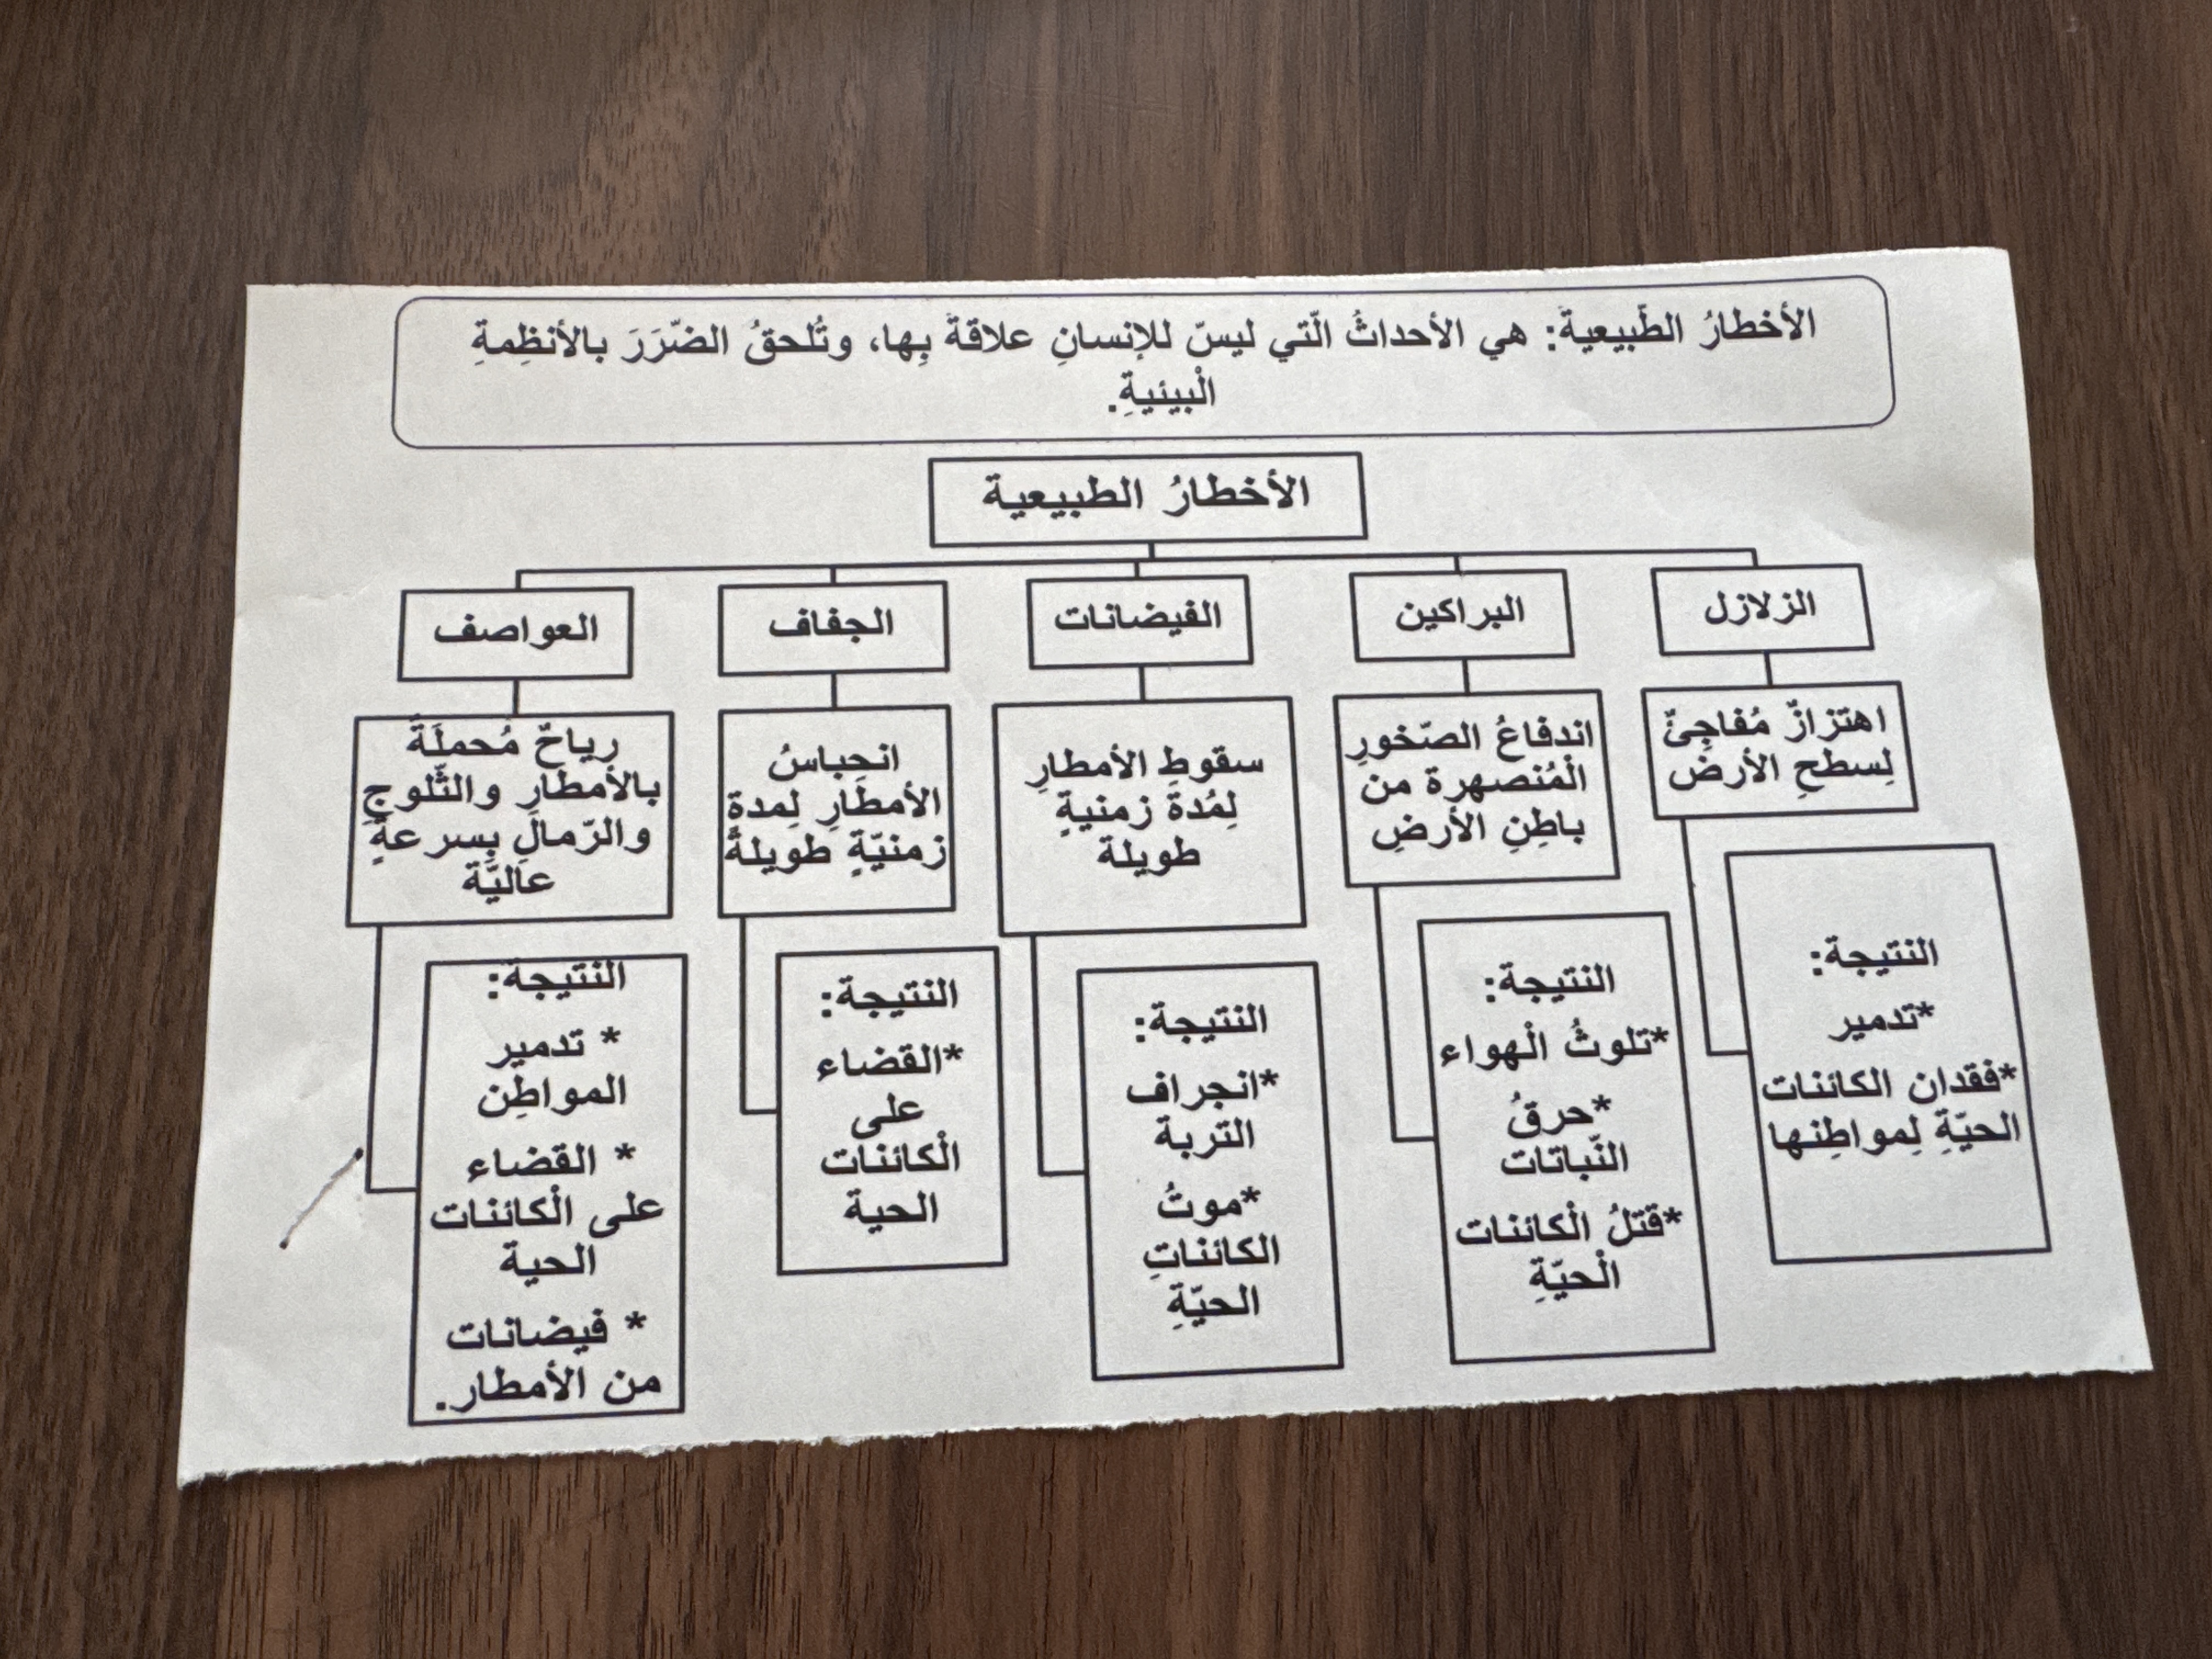 الأخطارُ الطّبيعيةَ: هي الأحداثُ الّتي ليسّ للإنسانِ علاقةَ بِها، وتُلحقُ الضّرَرَ بالأنظِمةِ
الْبيئيةِ.
الأخطارُ الطبيعية
الزلازل
البراكين
الفيضانات
الجفاف
العواصف
اهتزازٌ مُفاجِئٌ
لِسطحِ الأرض
اندفاعُ الصّخورِ
الْمُنصهرة من
باطِنِ الأرضِ
سقوطِ الأمطارِ
لِمُدةَ زمنيةٍ
طويلة
انحباسُ
الأمطَارِ لِمدةٍ
زمنيّةٍ طويلةً
رياحٌ مُحملَةً
بالأمطارِ والثّلوجِ
والرّمالَ بِسرعةٍ
عاليَّة
النتيجة:
*تدمير
*فقدان الكائنات
الحيّةِ لِمواطِنها
النتيجة:
*تلوثُ الْهواء
*حرقُ
النّباتات
*قتلُ الْكائنات
الْحيّةِ
النتيجة:
*انجراف
التربة
*موتُ
الكائناتِ
الحيّةِ
النتيجة:
*القضاء
على
الْكائنات
الحية
النتيجة:
* تدمير
المواطِن
* القضاء
على الْكائنات
الحية
* فيضانات
من الأمطار.